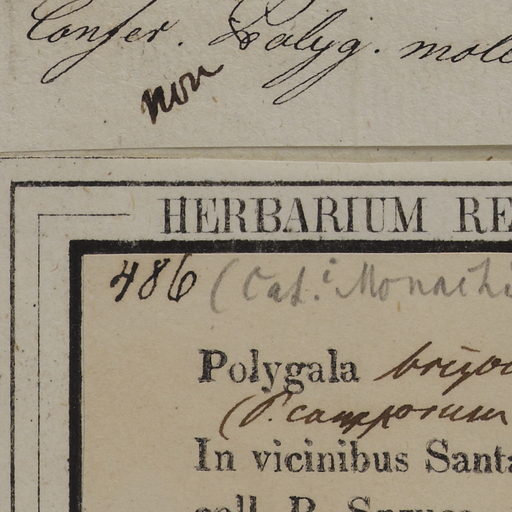 Confer. Polyg. mol
non
HERBARIUM RE
486 (Cat. Monachi
Polygala brizo
(P. camporum
In vicinibus Santa
coll. R. Spruce